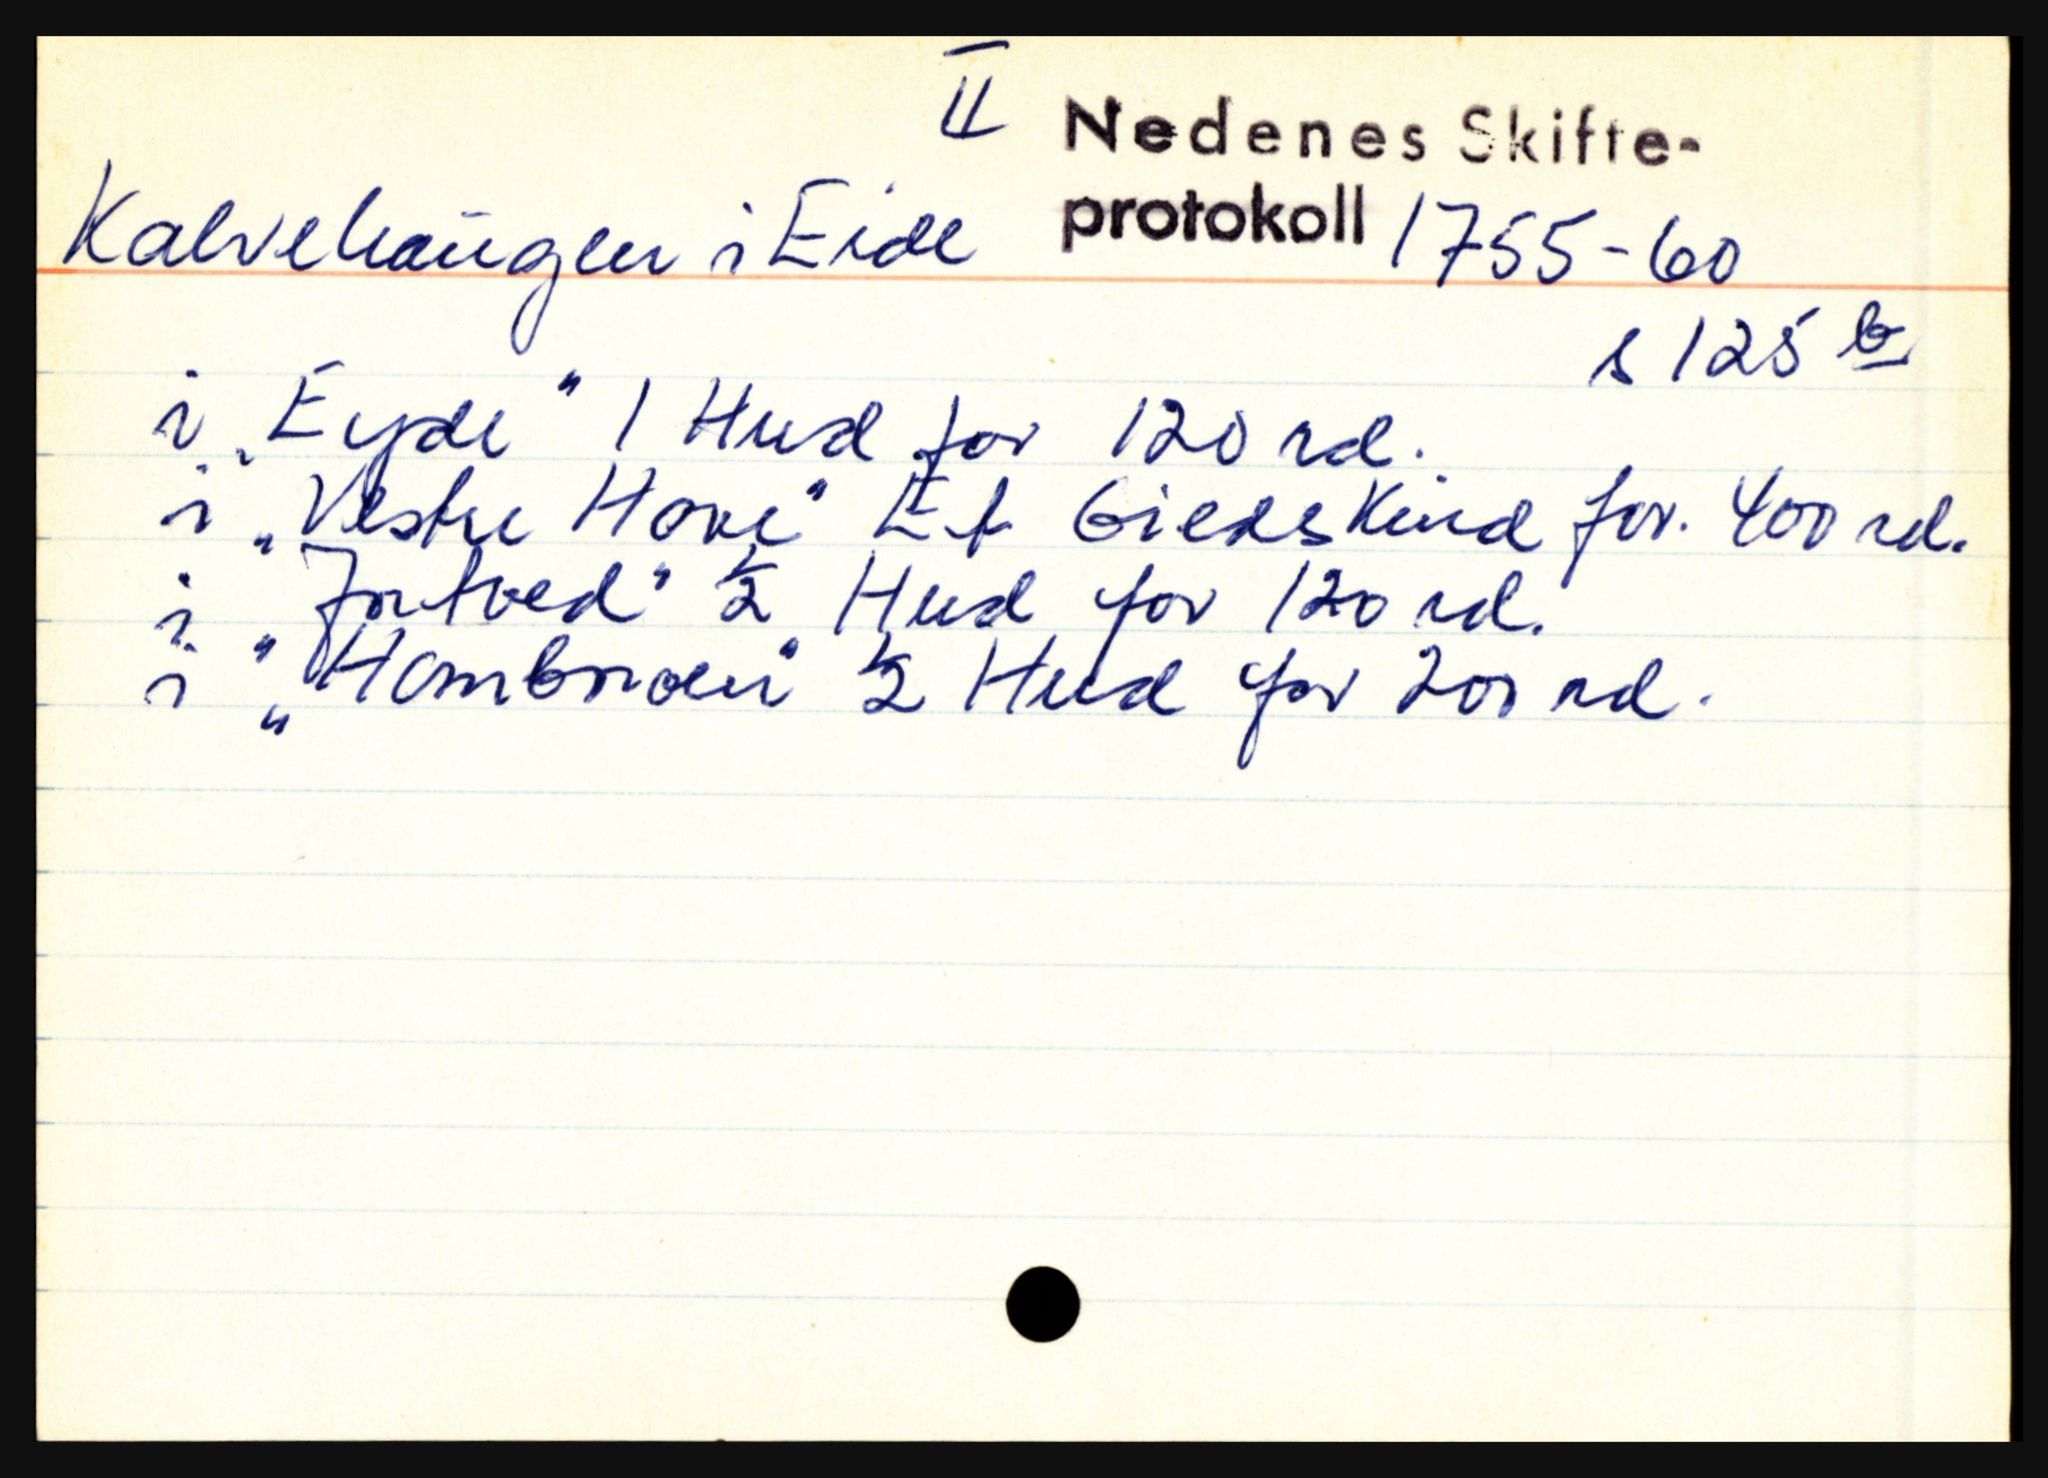 II
Nedenes Skifte-
Kalvehaugen i Eide protokoll 1755-60
s 125 b
i "Eyde" 1 Hud for 120 rd.
i "Vestre Hove" Et Giedskind for. 400 rd.
i "Fortved" ½ Hud for 120 rd.
i "Hombroen" ½ Hud for 200 rd.